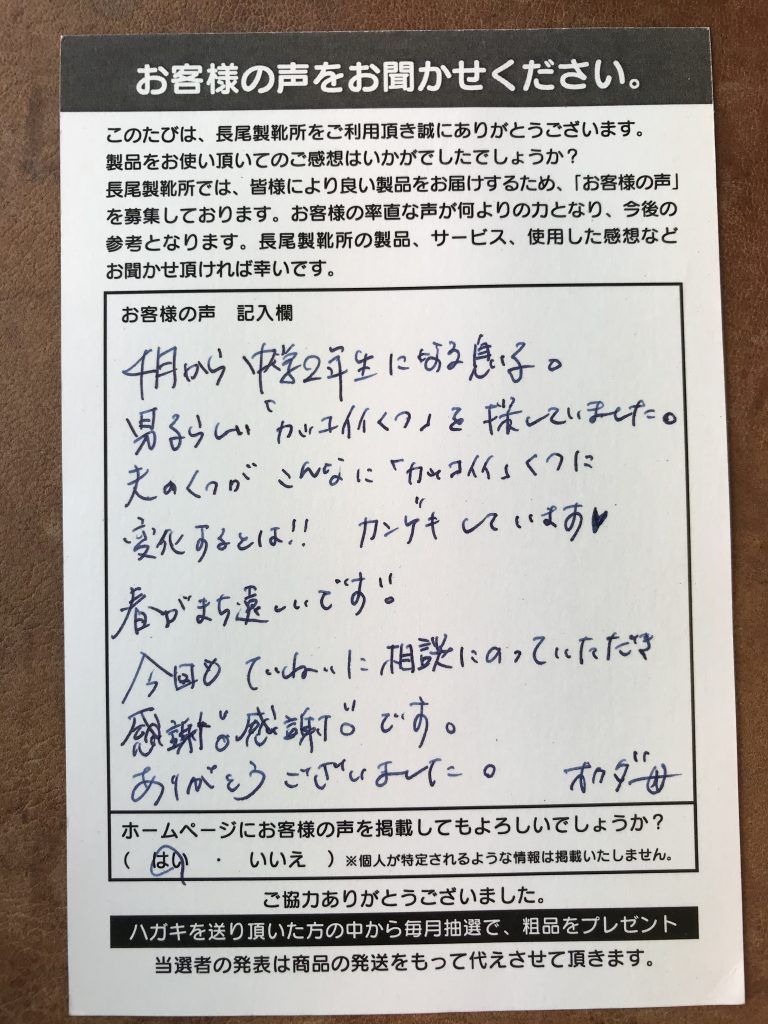 お客様の声をお聞かせください。
このたびは、長尾製靴所をご利用頂き誠にありがとうございます。
製品をお使い頂いてのご感想はいかがでしたでしょうか？
長尾製靴所では、皆様により良い製品をお届けするため、「お客様の声」
を募集しております。お客様の率直な声が何よりの力となり、今後の
参考となります。長尾製靴所の製品、サービス、使用した感想など
お聞かせ頂ければ幸いです。
お客様の声　記入欄
4月から 中学2年生になる息子。
男子らしい「カッコイイくつ」を探していました。
夫のくつが こんなに「カッコイイ」くつに
変化するとは!! カンゲキしています♥
春がまち遠しいです!!
今回も ていねいに 相談にのっていただき
感謝!!感謝!!です。
ありがとうございました。
ホームページにお客様の声を掲載してもよろしいでしょうか？
（　はい　・　いいえ　）※個人が特定されるような情報は掲載いたしません。
ご協力ありがとうございました。
ハガキを送り頂いた方の中から毎月抽選で、粗品をプレゼント
当選者の発表は商品の発送をもって代えさせて頂きます。